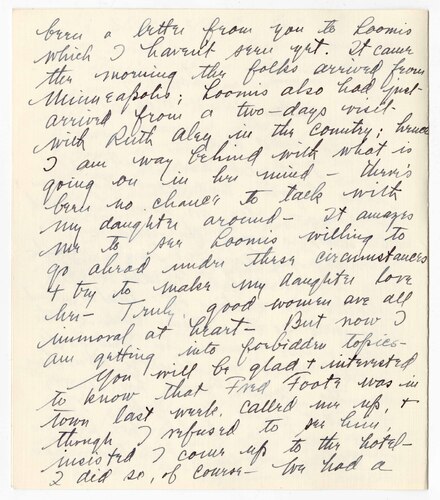 been a letter from you to Loomis
which I haven't seen yet. It came
the morning the folks arrived from
Minneapolis; Loomis also had just
arrived from a two-days visit
with Ruth Aley in the country; hence
I am way behind with what is
going on in her mind - there's
been no chance to talk with
my daughter around - It amazes
me to see Loomis willing to
go ahead under these circumstances
+ try to make my daughter love
her - Truly, good women are all
immoral at heart - But now I
am getting into forbidden topics -
You will be glad + interested
to know that Fred Foote was in
town last week, called me up, +
though I refused to see him,
insisted I come up to the hotel -
I did so, of course - We had a